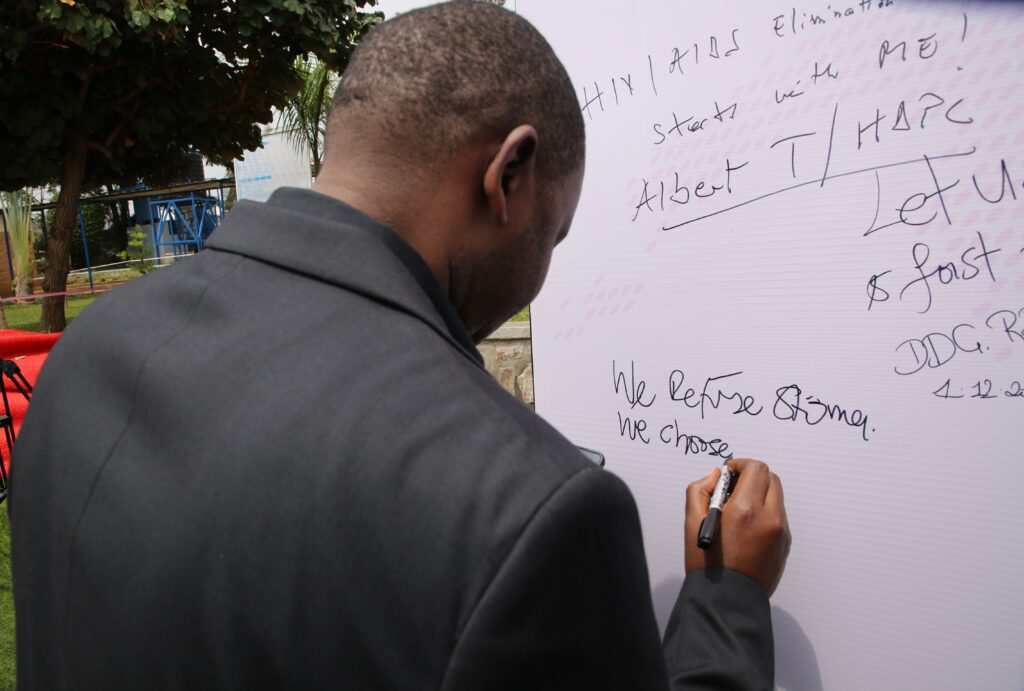 HIV/AIDS Elimination
starts with ME!
Albert T/HAPC
Let
forst
DDG.
1.12.20
We Refuse Stigma.
We choose